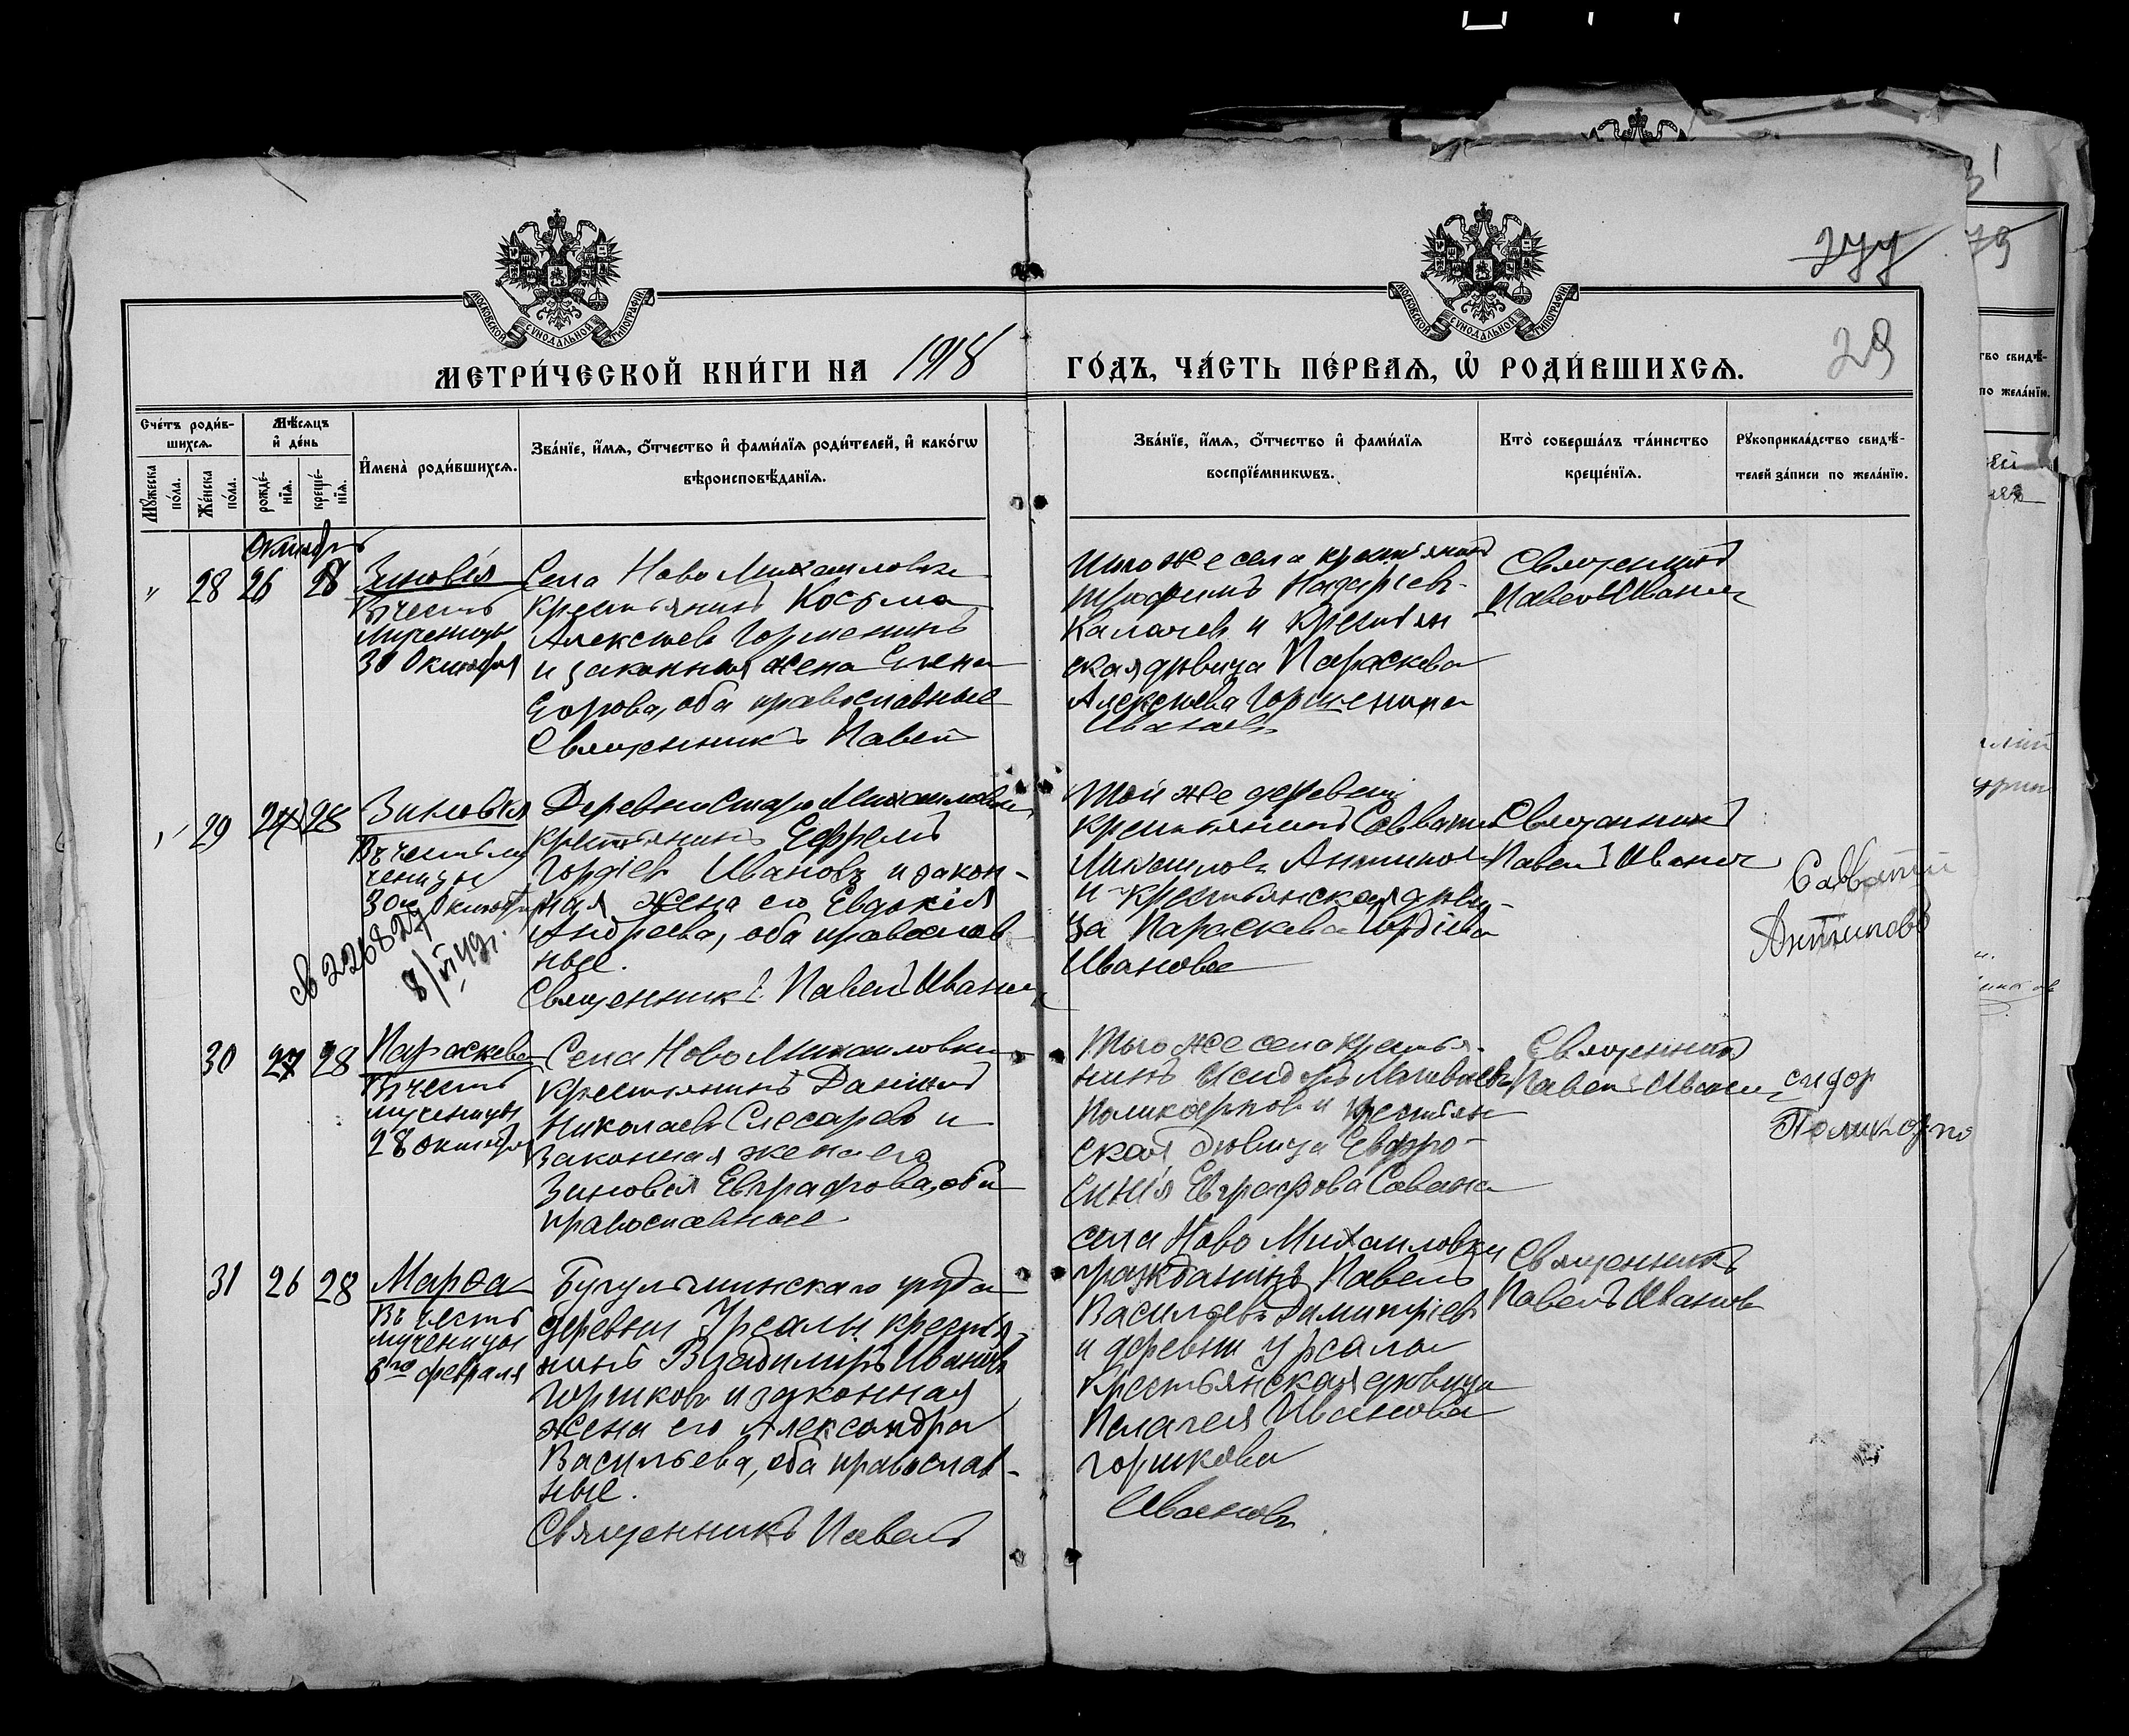 МОСКОВСКОЙ СѴНОДАЛЬНОЙ ТИПОГРАФІИ
МОСКОВСКОЙ СѴНОДАЛЬНОЙ ТИПОГРАФІИ
29
МЕТРИ́ЧЕСКОЙ КНИ́ГИ НА 1918 ГО́ДЪ, ЧА́СТЬ ПЕ́РВАѦ, Ѡ҆ РОДИ́ВШИХСѦ.
Сче́тъ роди́в-
шихсѧ.
Мꙋ́жеска по́ла.
Же́нска по́ла.
Мѣ́сѧцъ
и҆ де́нь
рожде́-нїѧ.
креще́-нїѧ.
И҆мена̀ роди́вшихсѧ.
Зва́нїе, и҆́мѧ, ѻ҆́тчество и҆ фами́лїѧ роди́телей, и҆ како́гѡ
вѣроисповѣ́данїѧ.
Зва́нїе, и҆́мѧ, ѻ҆́тчество и҆ фами́лїѧ
воспрїе́мникѡвъ.
Кто̀ соверша́лъ та́инство
креще́нїѧ.
Рꙋкоприкла́дство свидѣ́-
телей за́писи по жела́нїю.
Октябрь
" 28 26 28
Зиновія
Въ честь
мученицы
30 Октября
Села Ново Михаиловки
крестьянинъ Косьма
Алексѣевъ Горшенинъ
и законная жена Елена
Егорова, оба православные
Священникъ Павелъ
Того же села крестьянинъ
Трофимъ Назарьевъ
Калачевъ и крестьян
ская дѣвица Параскева
Алексѣева Горшенина
Ивановъ
Священникъ
Павелъ Ивановъ
" 29 24 28
Зиновія
Въ честь му
ченицы
30 Октября
Деревни Старо Михаиловки
крестьянинъ Ефремъ
Гордіевъ Ивановъ и закон-
ная жена его Евдокія
Андреева, оба православ
ные.
Священникъ Павелъ Ивановъ
Той же деревни
крестьянинъ Савватій
Михаиловъ Антиповъ
и крестьянская дѣви-
ца Параскева Гордіева
Иванова
Священникъ
Павелъ Ивановъ
Савватий
Антиповъ
30 27 28
Параскева
Въ честь
мученицы
28 октября
Села Ново Михаиловки
крестьянинъ Даніилъ
Николаевъ Слесаревъ и
законная жена его
Зиновія Евграфова, оба
православные
Того же села крестья-
нинъ Исидоръ Матвѣевъ
Поликарповъ и крестьян
ская дѣвица Евфро-
синія Евграфова
Священникъ
Павелъ Ивановъ
сидор
31 26 28
Марѳа
Въ честь
мученицы
6го февраля
Бугульминскаго уѣзда
деревни Урсалы крестья-
нинъ Владимиръ Ивановъ
Горшковъ и законная
жена его Александра
Васильева, оба православ-
ные.
Священникъ Павелъ
села Ново Михаиловки
гражданинъ Павелъ
Васильевъ Димитріевъ
и деревни Урсала
крестьянская дѣвица
Пелагея Иванова
Горшкова
Ивановъ
Священникъ
Павелъ Ивановъ